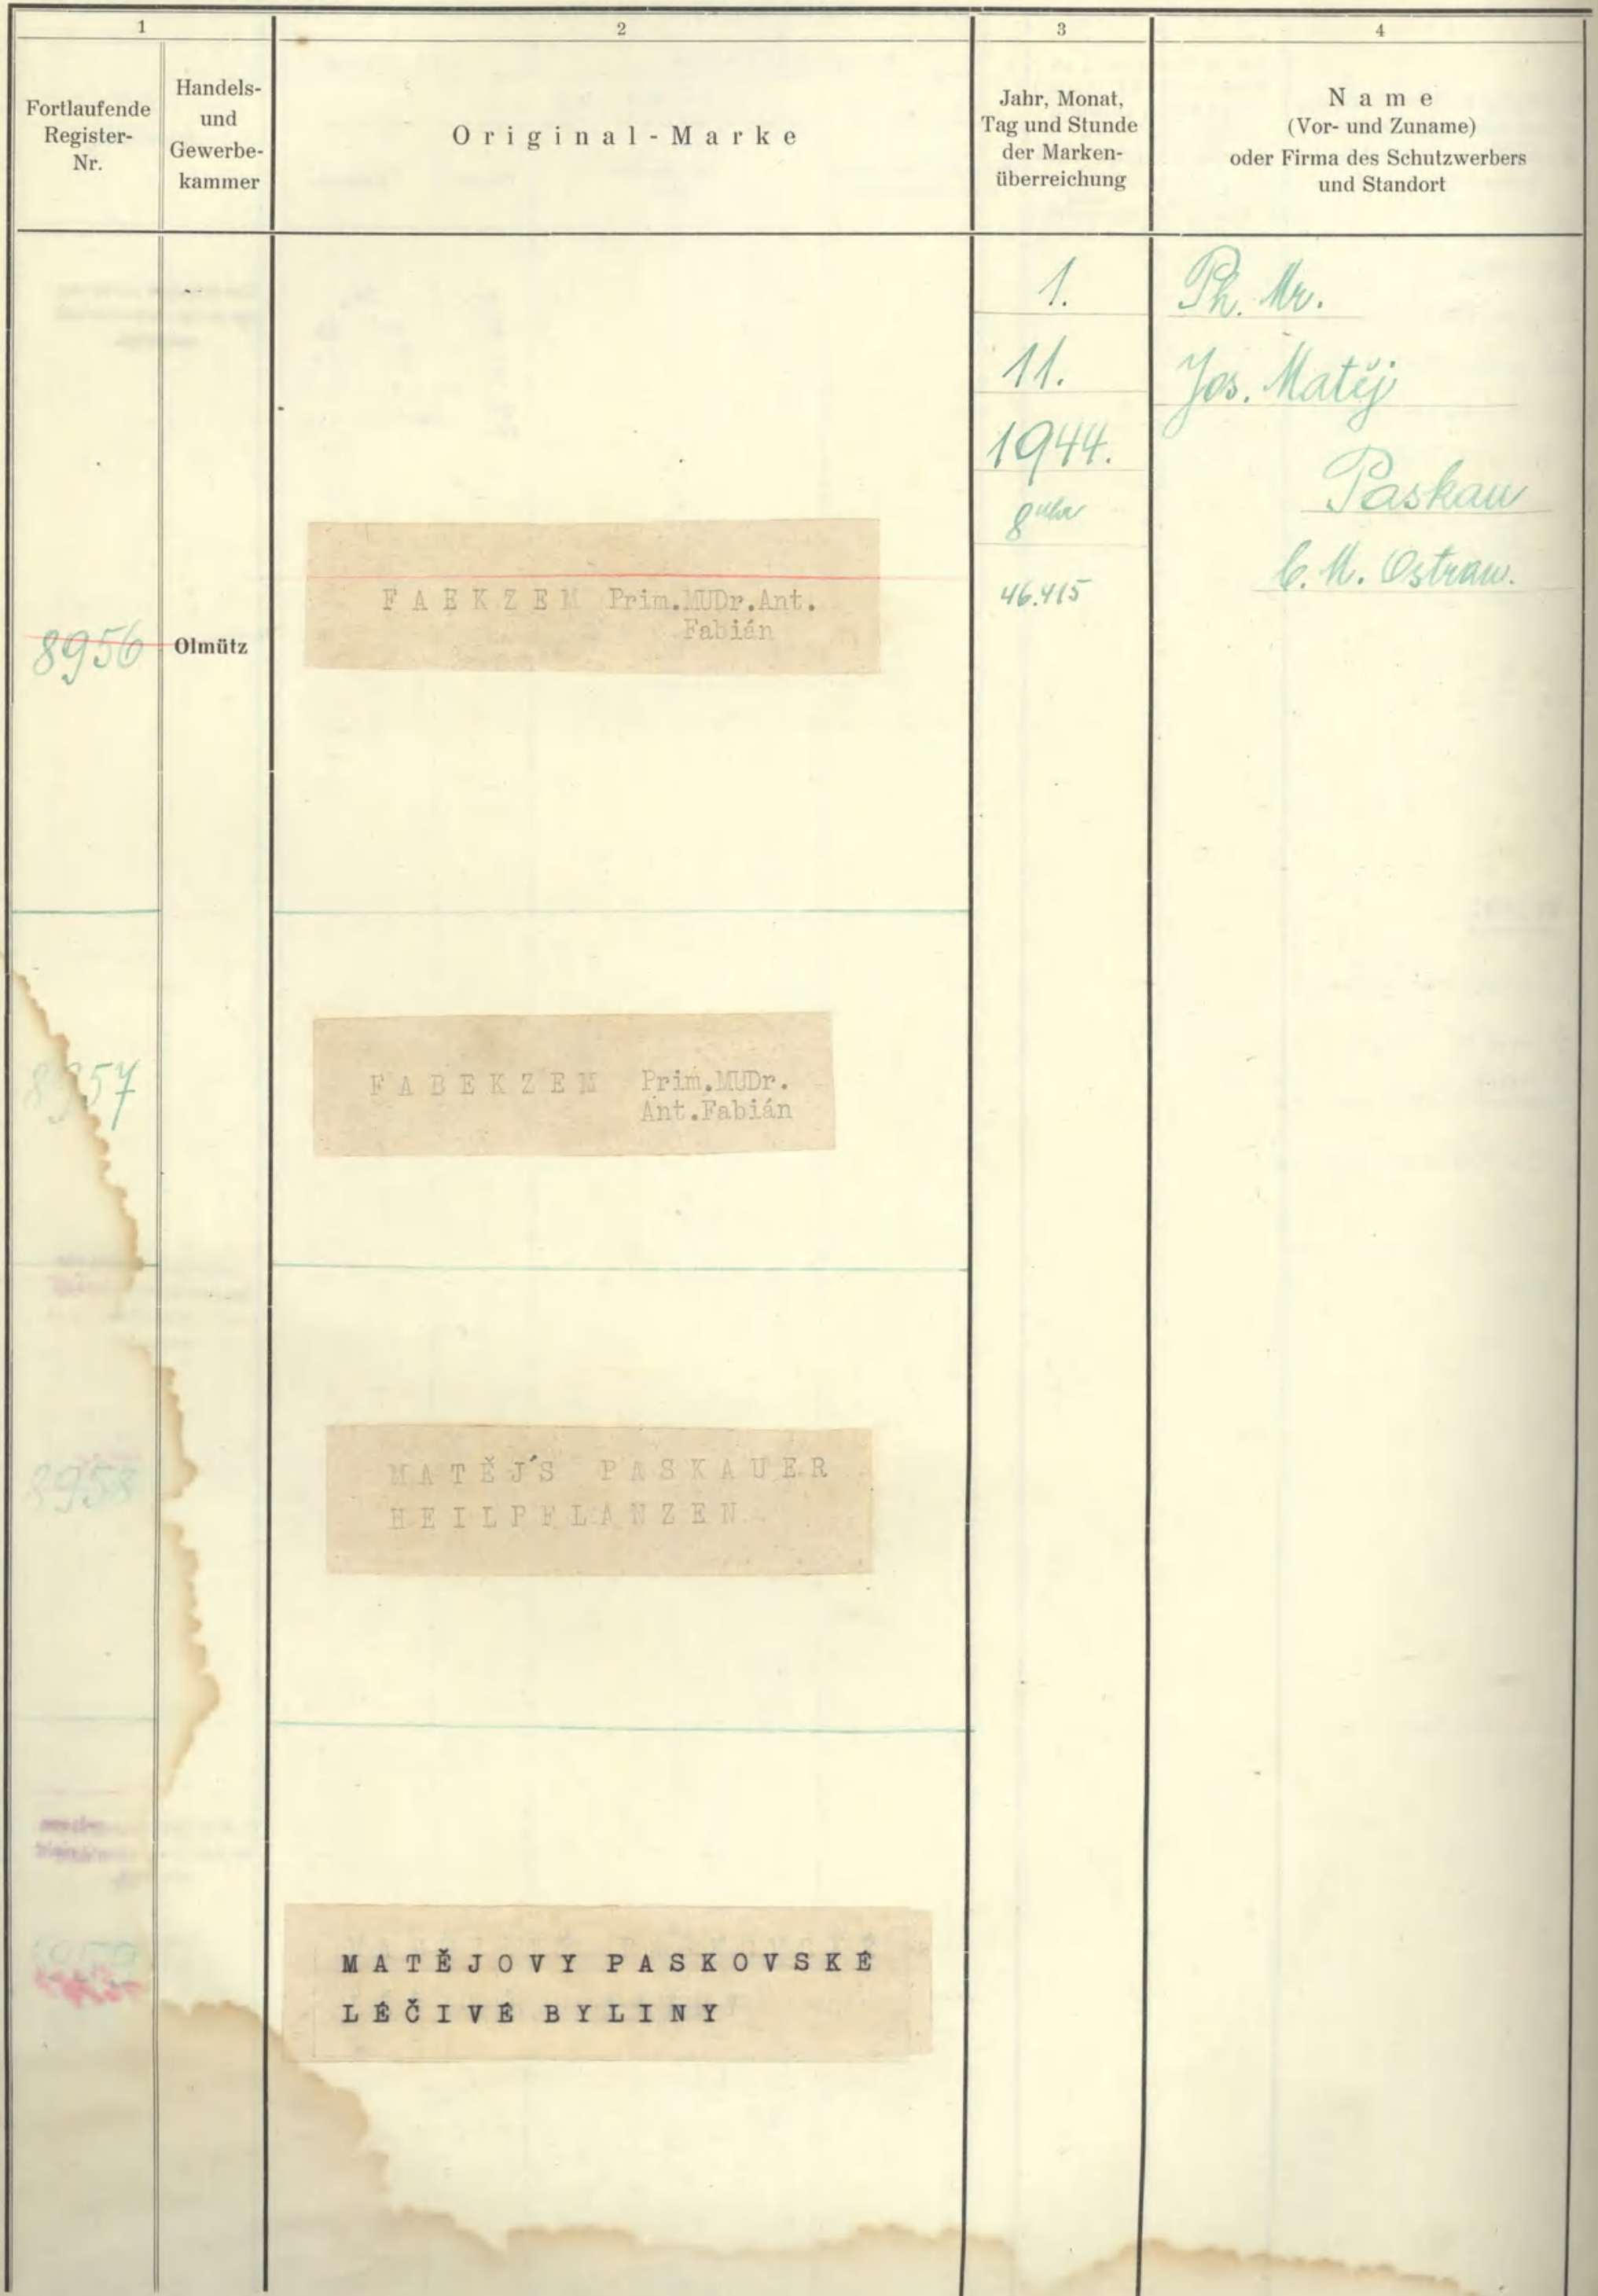 1
2
3
4
Fortlaufende
Register-
Nr.
Handels-
und
Gewerbe-
kammer
Original-Marke
Jahr, Monat,
Tag und Stunde
der Marken-
überreichung
Name
(Vor- und Zuname)
oder Firma des Schutzwerbers
und Standort
8956
Olmütz
FAEKZEM Prim.MUDr.Ant.
Fabián
1.
11.
1944.
8 uhr
46.415
Ph. Mr.
Jos. Matěj
Paskau
b. M. Ostrau.
8957
FABEKZEM Prim.MUDr.
Ant.Fabián
8958
MATĚJ´S PASKAUER
HEILPFLANZEN
MATĚJOVY PASKOVSKÉ
LÉČIVÉ BYLINY